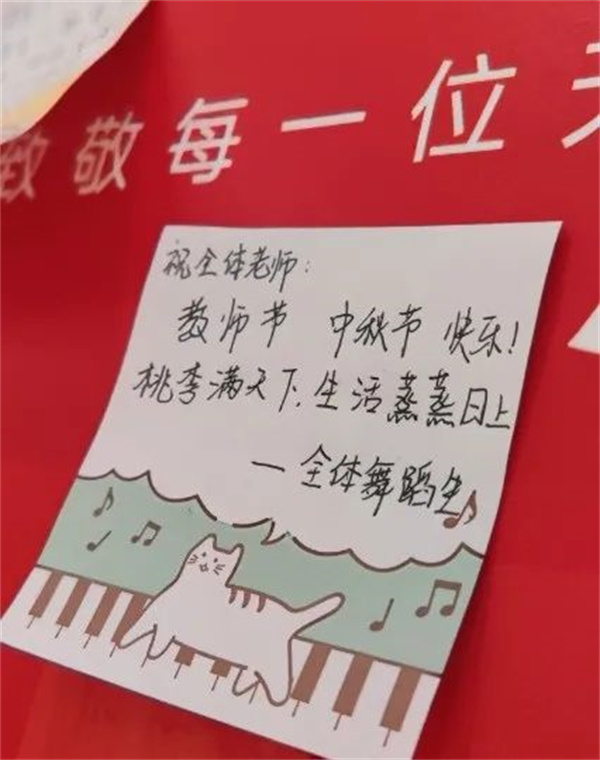 致敬每一位
祝全体老师：
教师节 中秋节 快乐!
桃李满天下.生活蒸蒸日上
—全体舞蹈生